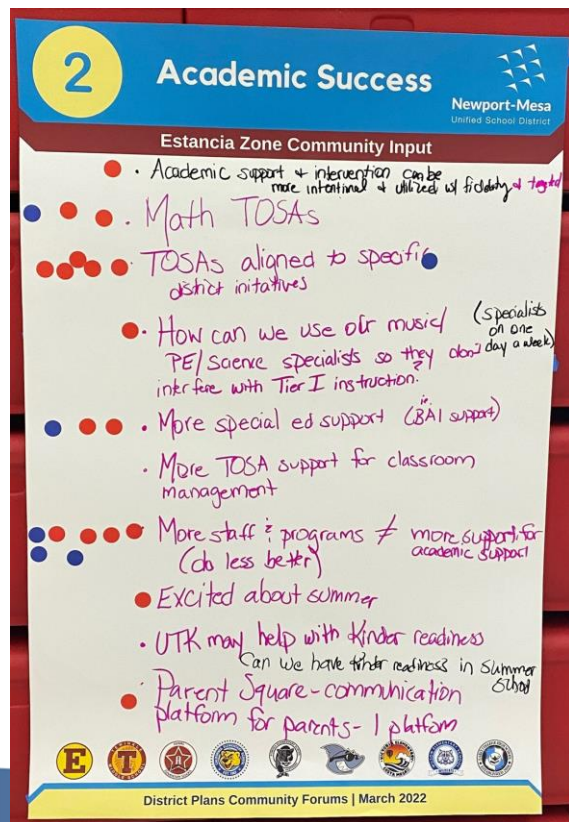 2
Academic Success
Newport-Mesa
Unified School District
Estancia Zone Community Input
• Academic support + intervention can be
more intentional + utilized w/ fidelity + targeted
• Math TOSAs
• TOSAs aligned to specific
district initatives
• How can we use our music/
PE/Science specialists so they don't
interfere with Tier I instruction?
(specialists
on one
day a week)
• More special ed support (ie. BAI support)
• More TOSA support for classroom
management
• More staff & programs ≠ more support for
academic support
(do less better)
• Excited about summer
• UTK may help with Kinder readiness
Can we have kinder readiness in summer
school
• Parent Square - communication
platform for parents - 1 platform
E
T
District Plans Community Forums | March 2022